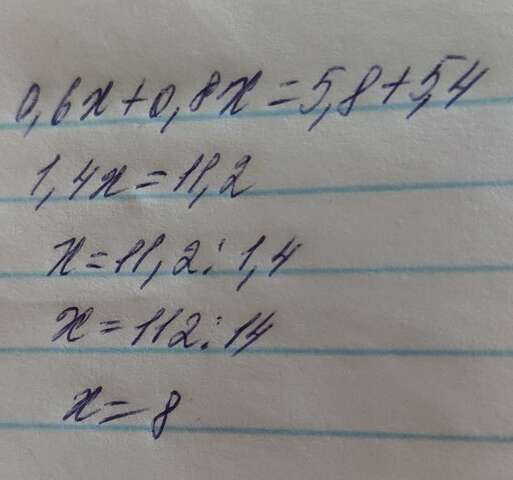 0,6x+0,8x=5,8+5,4
1,4x=11,2
x=11,2:1,4
x=112:14
x=8